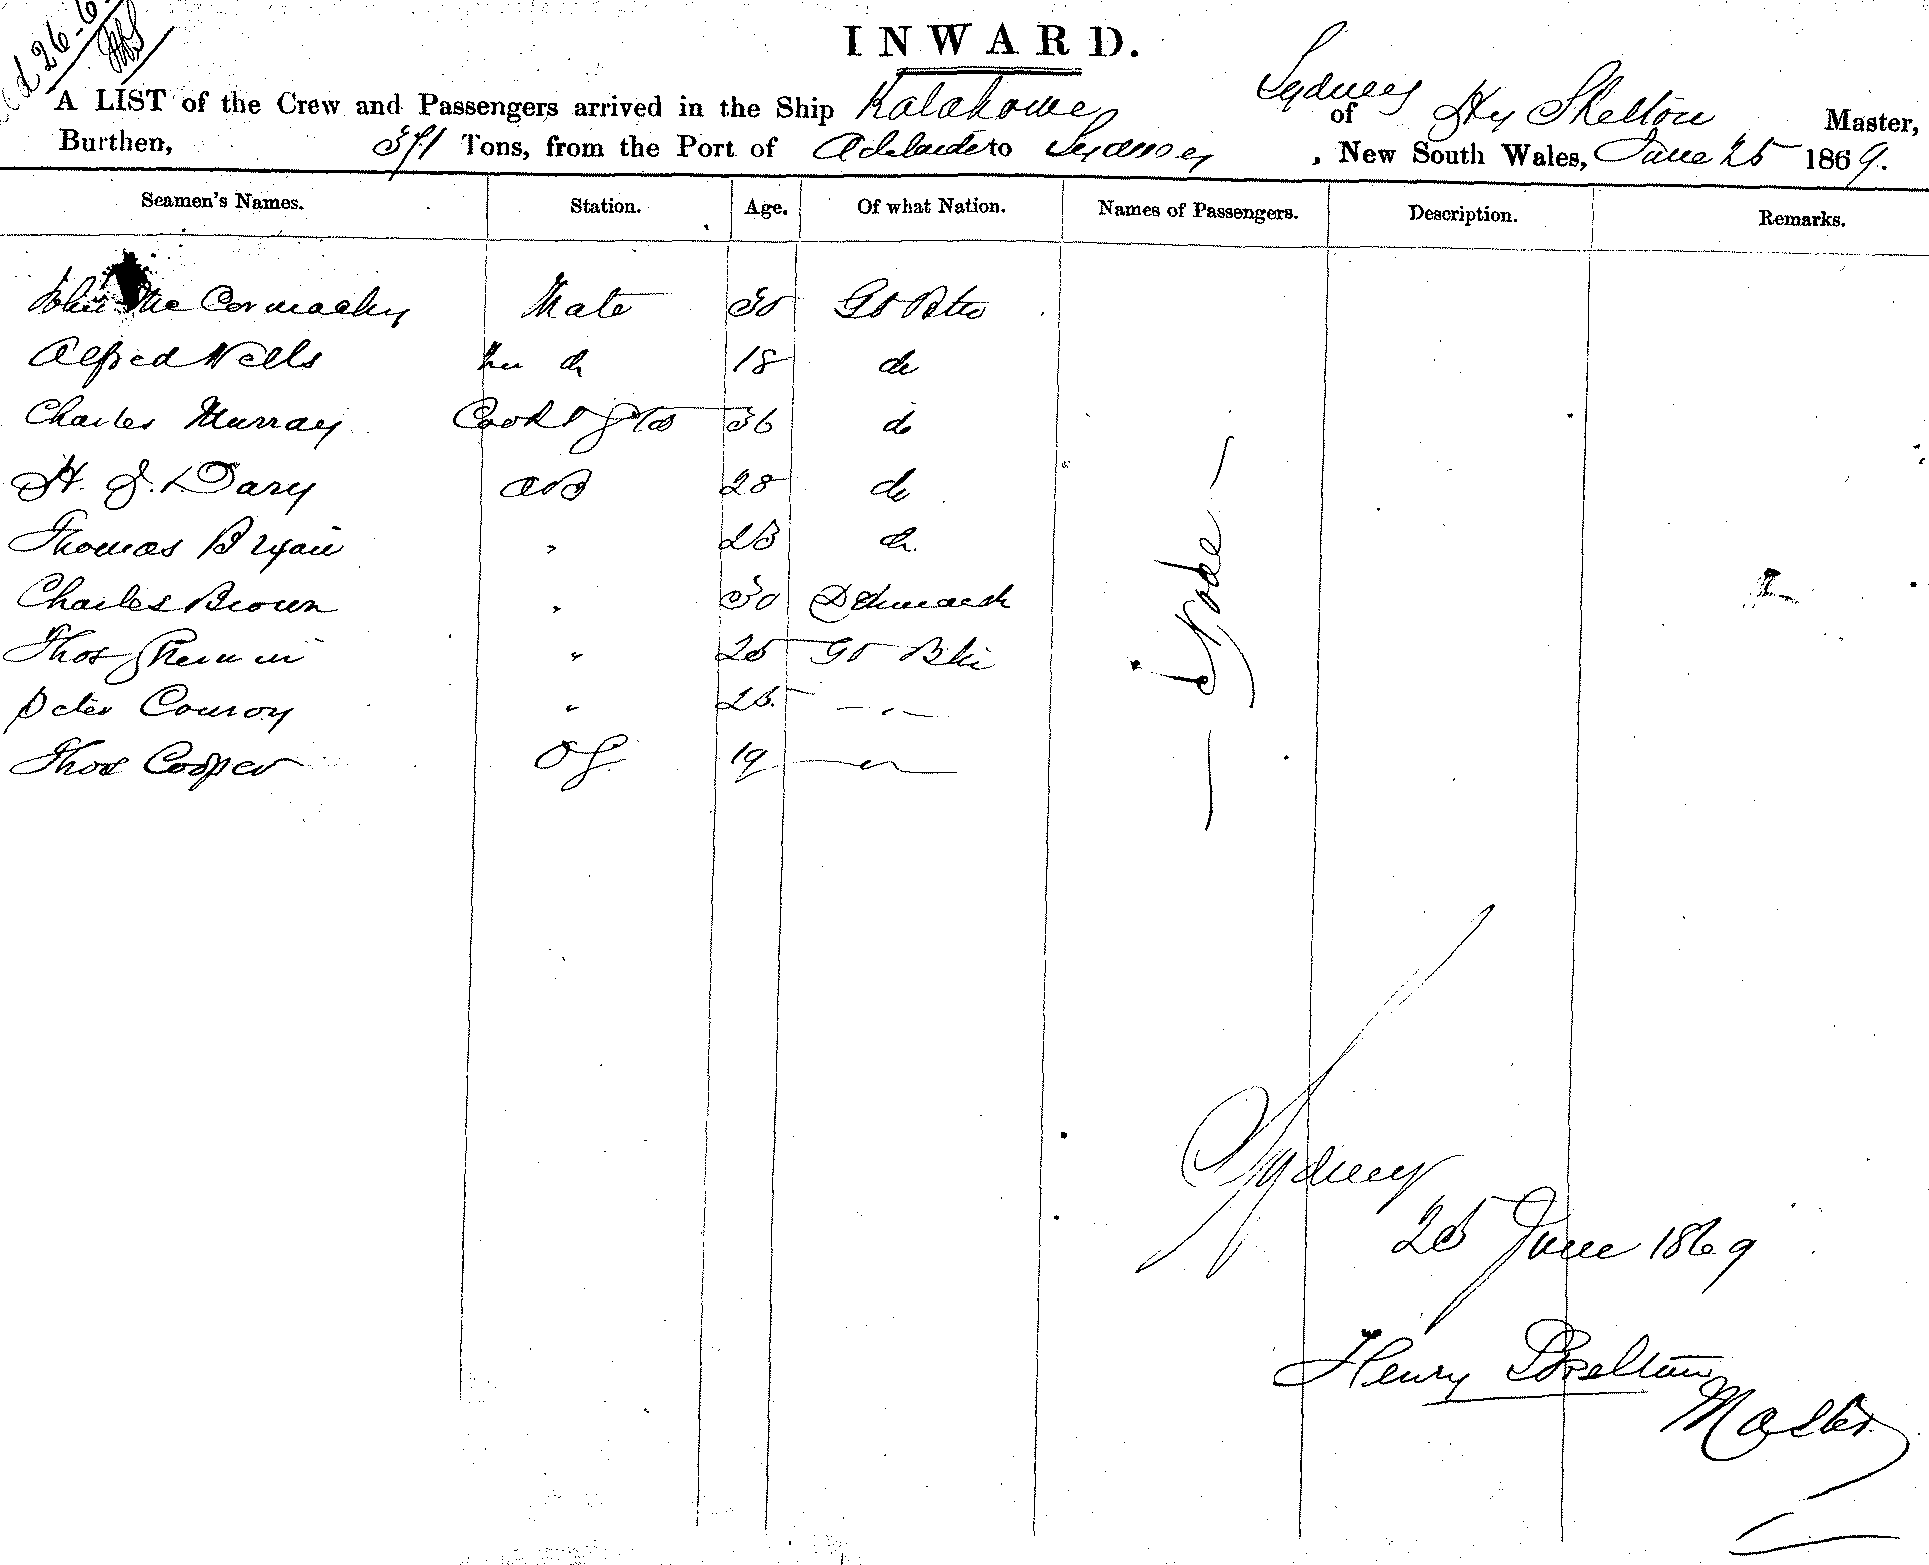 26-6
INWARD.
A LIST of the Crew and Passengers arrived in the Ship Kalahome Sydney of Hy Skelton Master,
Burthen, Tons, from the Port of Adelaide to Sydney, New South Wales, June 25 1869.
Seamen's Names. Station. Age. Of what Nation. Names of Passengers. Description. Remarks.
John Mc Cormack Mate 30 Gt Btn
Alfred Wells 18 do
Charles Murray Cook & Std 36 do
H. J. Dary AB 28 do
Thomas Bryan " 23 do
Charles Brown " 30 Denmark
Thos " 25 Gt Btn
Peter Conroy " 25 — " —
Thos Cooper OS 19 — " —
Sydney
25 June 1869
Henry Skelton
Master